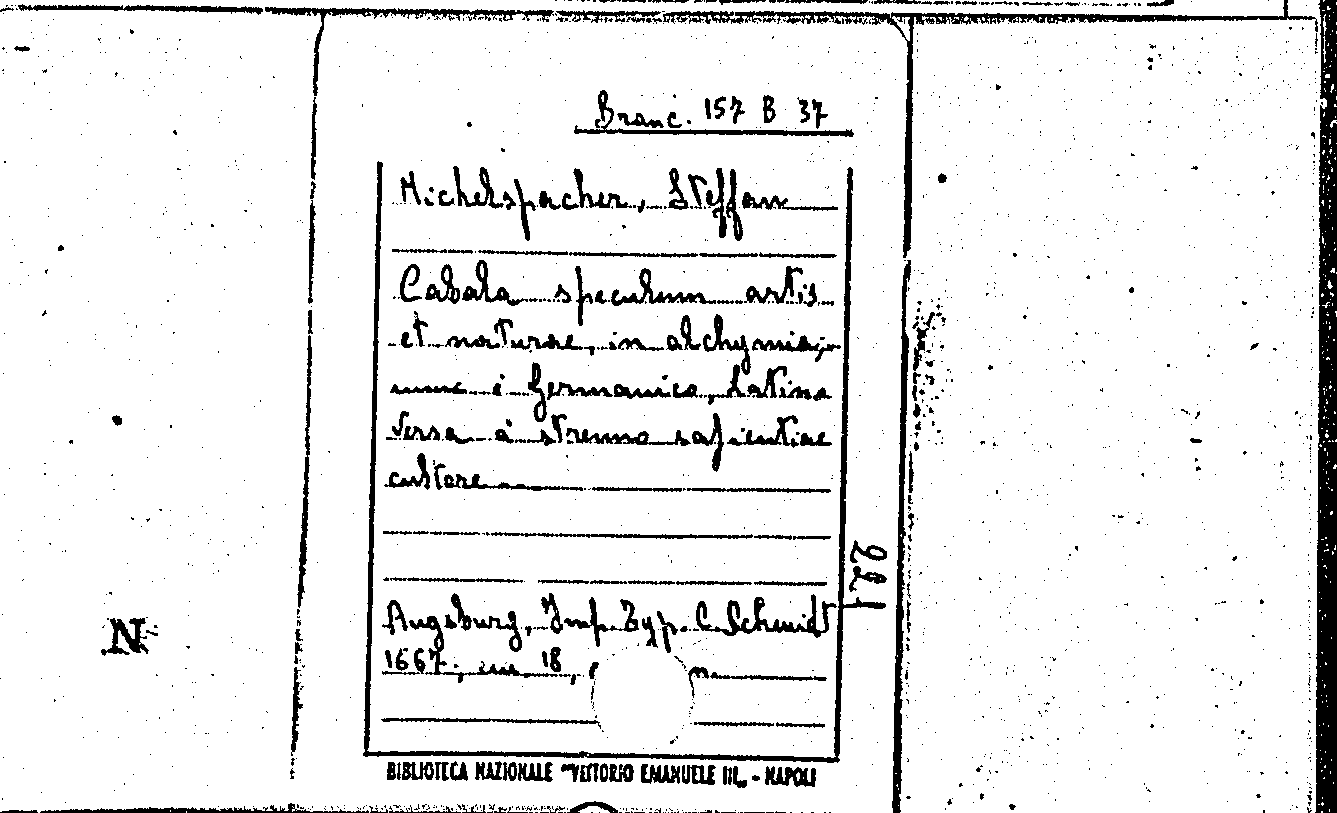 Branc. 157 B 37
Michelspacher, Steffan
Cabala speculum artis
et naturae, in alchymia;
nunc è Germanico, Latino
versa à strenuo sapientiae
cultore
221
Augsburg, Imp. Typ. C. Schmidt
1667, in 18,
N
BIBLIOTECA NAZIONALE "VITTORIO EMANUELE III" - NAPOLI